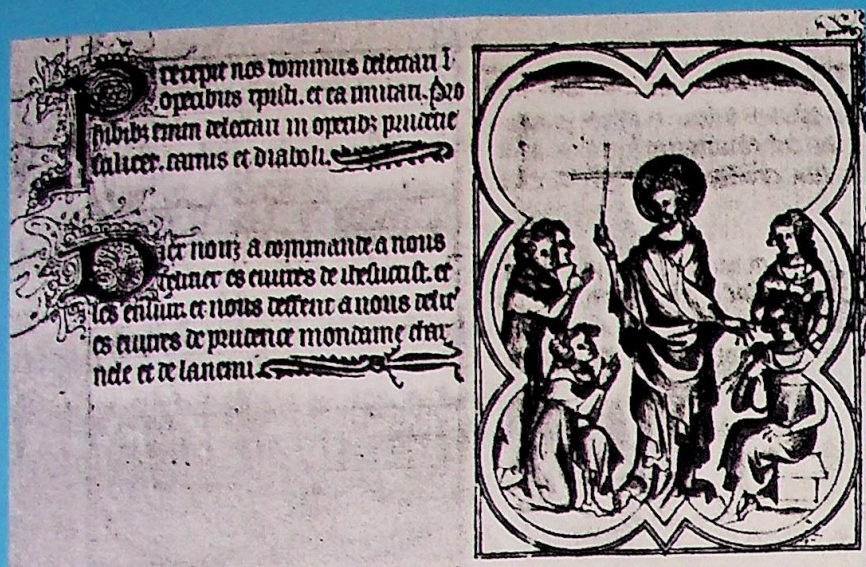 Precepit nos dominus delectari I
operibus xpisti. et ea imitari. Pro
hibibz enim delectari in operibz prudecie
scilicet. carnis et diaboli.
Dier nouz a commande a nous
deliter es euures de ihesucrist. et
les ensuir. et nous deffent a nous delit'
es euures de prudence mondaine char
nele et de lanemi